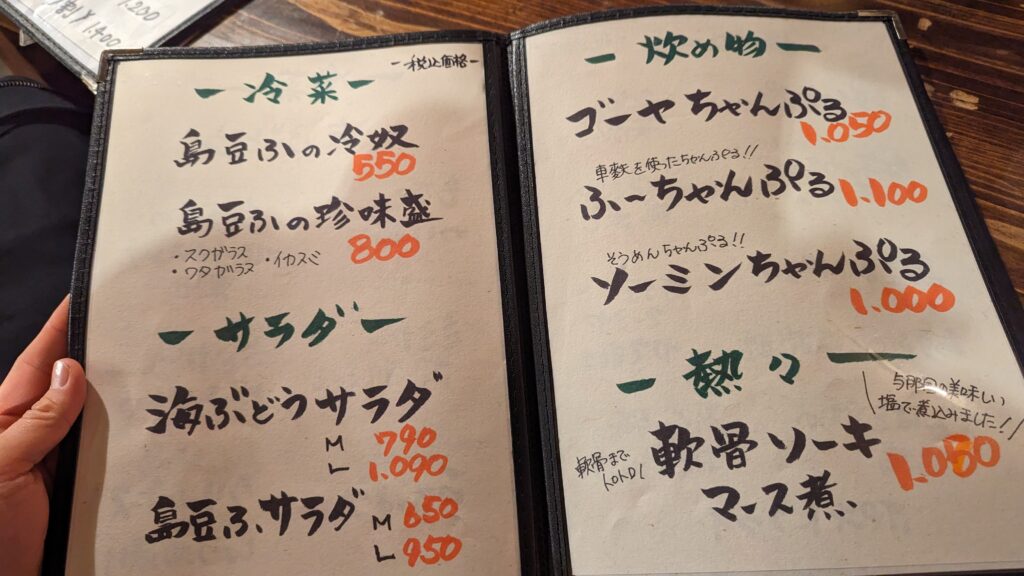 1,200
¥1,400
ー税込価格ー
ー冷菜ー
島豆ふの冷奴
550
島豆ふの珍味盛
800
・スクガラス
・ワタガラス ・イカスミ
ーサラダー
海ぶどうサラダ
M 790
L 1.090
島豆ふサラダ
M 650
L 950
ー炊め物ー
ゴーヤちゃんぷる
1.050
車麩を使ったちゃんぷる!!
ふーちゃんぷる
1.100
そうめんちゃんぷる!!
ソーミンちゃんぷる
1.000
ー熱々ー
与那国の美味しい
塩で煮込みました!!
軟骨まで
トロトロ!
軟骨ソーキ
マース煮